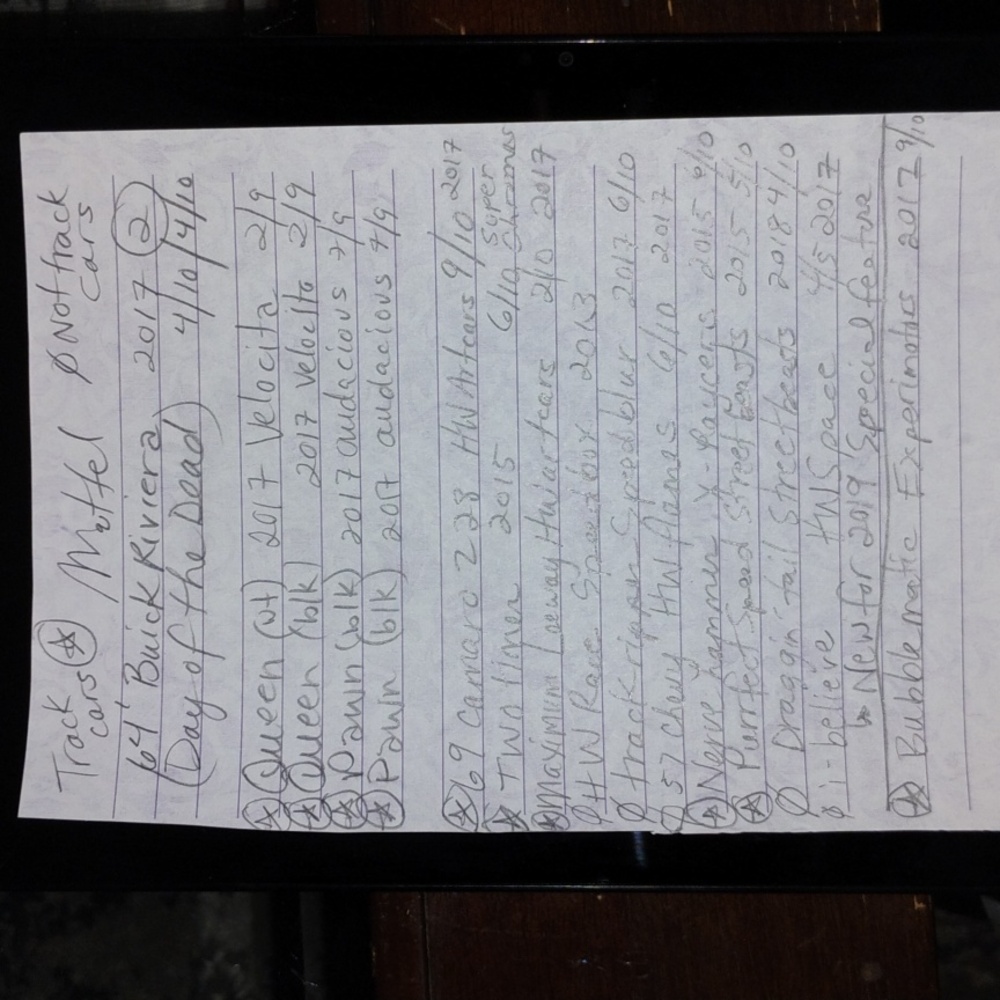 Track ⍟ Mattel Ø Not track
cars cars
'64 Buick Riviera 2017 ②
(Day of the Dead) 4/10/4/10
⍟ Queen (wt) 2017 Velocita 2/9
⍟ Queen (blk) 2017 velocita 2/9
⍟ Pawn (blk) 2017 audacious 7/9
⍟ Pawn (blk) 2017 audacious 7/9
⍟ 69 Camaro Z28 HW Artcars 9/10 2017
★ Two Toner 2015 6/10 Super Chromes
⍟ Maximum Leeway HW artcars 2/10 2017
Ø HW Race Speedbox 2013
Ø track ripper Speed blur 2017 6/10
Ø 57 Chevy HW flames 6/10 2017
⍟ Nerve hammer X-Raycers 2015 /10
⍟ Purrfect Speed Street beasts 2015 5/10
Ø Draggin' tail Street beasts 2018 4/10
Ø i-believe HW Space 4/5 2017
★ New for 2019 Special feature
⍟ Bubble matic Experimotors 2017 9/10